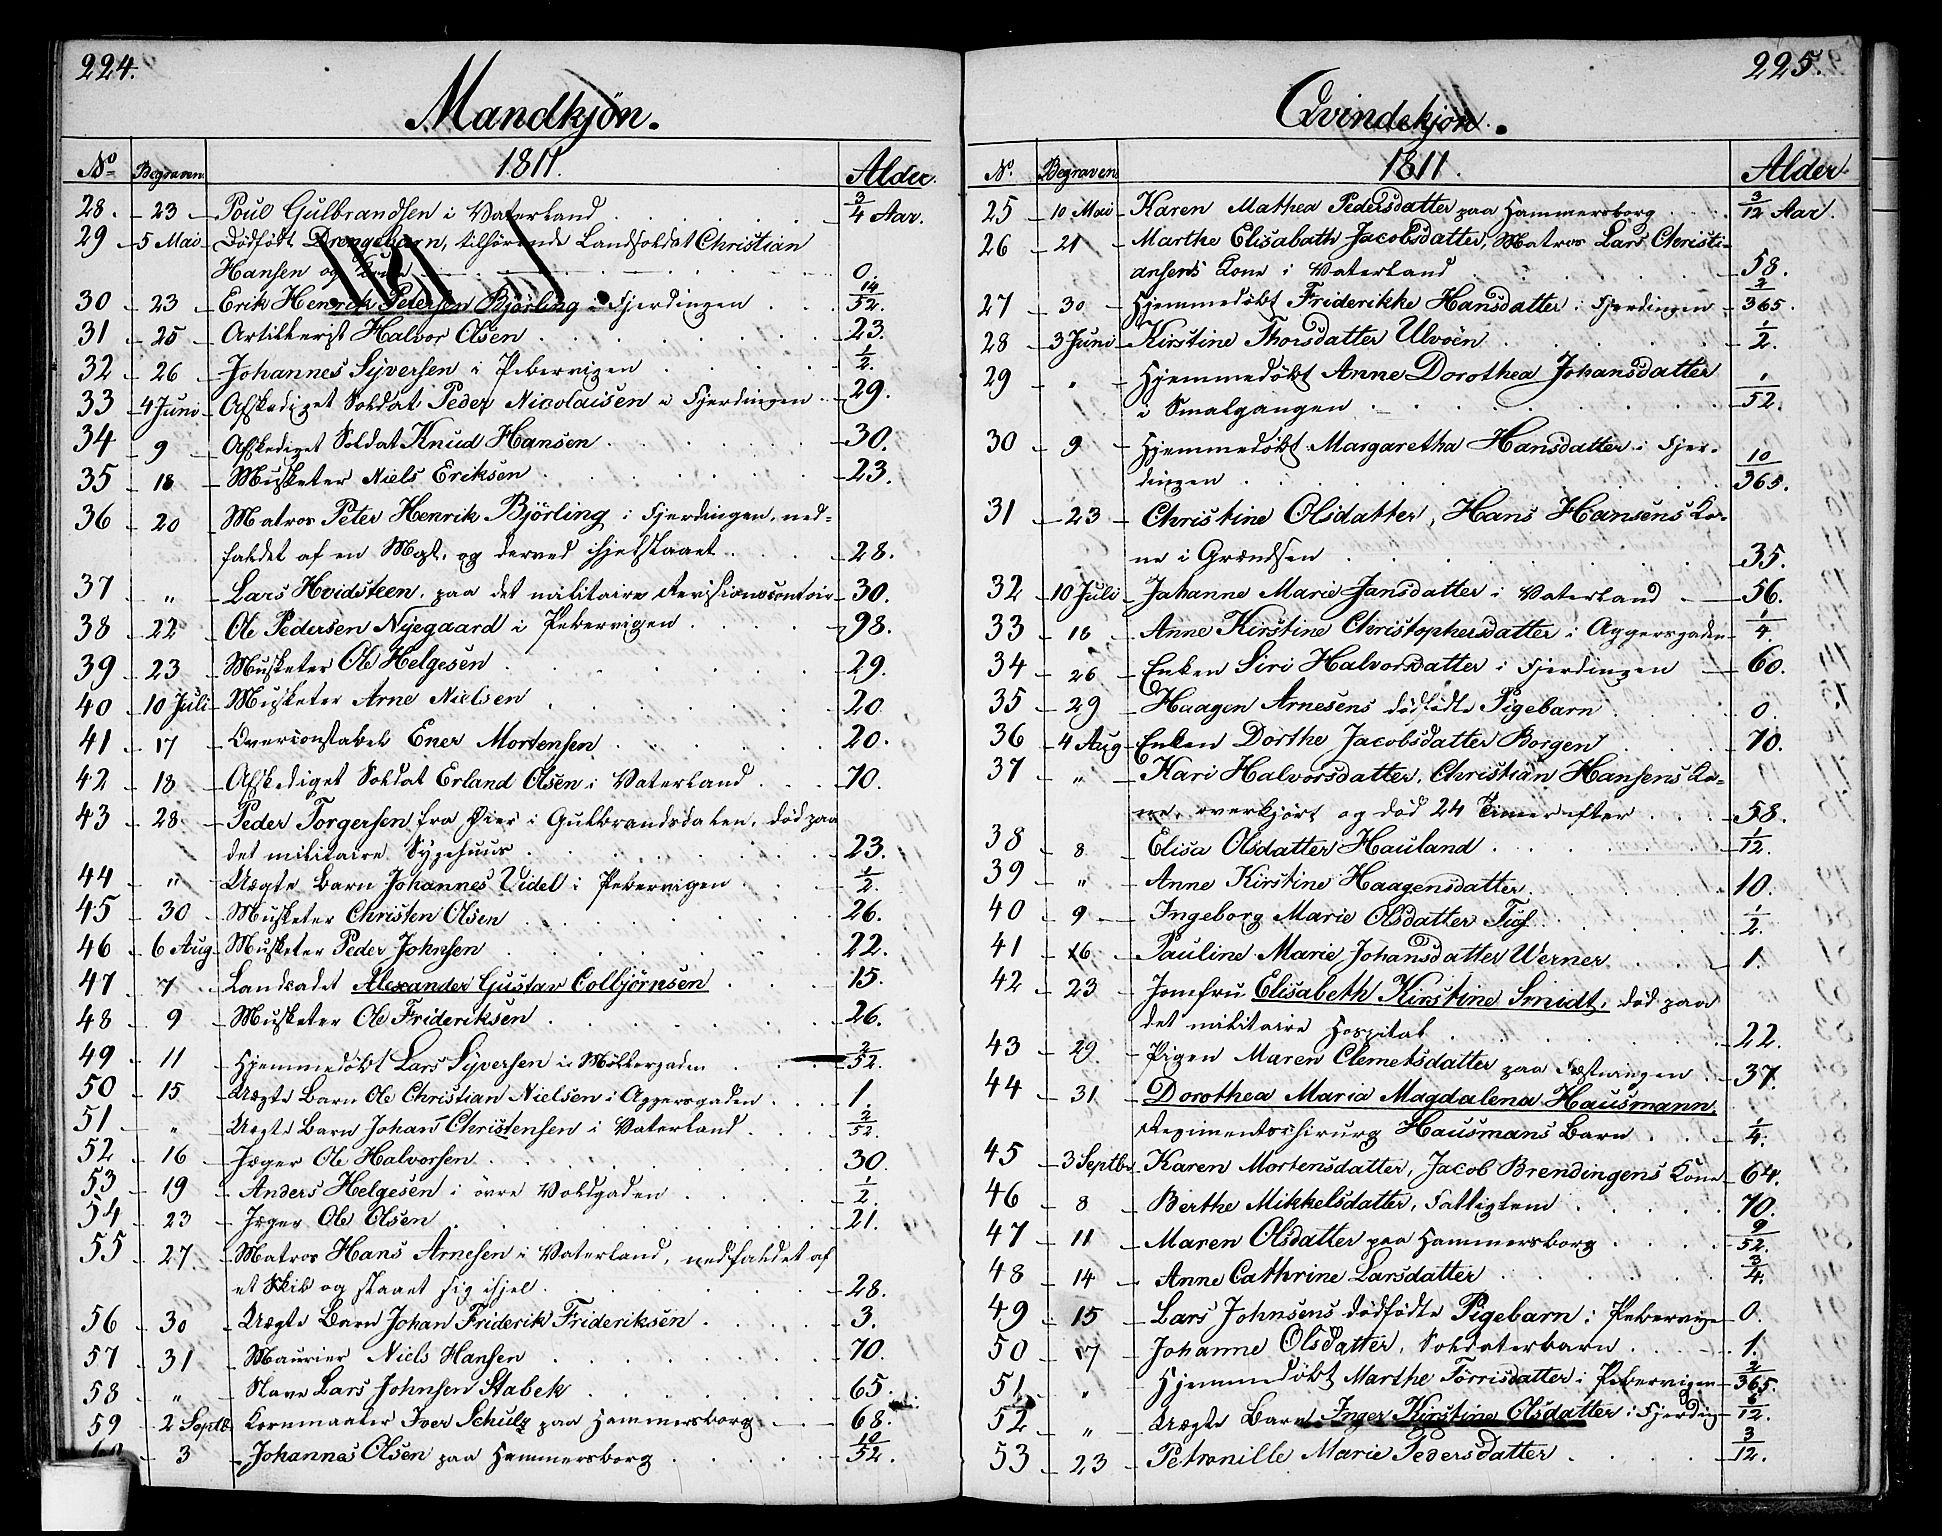 224.
Mandkjön.
No Begraven. 1811. Alder.
28. 23 Poul Gulbrandsen i Vaterland 3/4 Aar.
29 5 Mai Dödfödt Drengebarn, tilhörende Landsoldat Christian
Hansen og Kone 0.
30 23 Erik Henrik Petersen Björling i Fjerdingen 14/52.
31 25 Artillerist Halvor Olsen 23.
32 26 Johannes Syversen i Pebervigen 1/2.
33 4 Juni Afskediget Soldat Peder Nicolaisen i Fjerdingen 29.
34 9 Afskediget Soldat Knud Hansen 30.
35 18 Musketer Niels Eriksen 23.
36 20 Matros Peter Henrik Björling i Fjerdingen, ned-
faldet af en Mast, og derved ihjelslaaet 28.
37 " Lars Hvidsteen, paa det militaire Revisionscontoir 30.
38 22 Ole Pedersen Nyegaard i Pebervigen 98.
39 23 Musketer Ole Helgesen 29.
40 10 Juli Musketer Arne Nielsen 20.
41 17 Overconstabel Ener Mortensen 20.
42 18 Afskediget Soldat Erland Olsen i Vaterland 70.
43 28 Peder Torgersen fra Öier i Gulbrandsdalen, död paa
det militaire Sygehuus 23.
44 " Uægte Barn Johannes Videl i Pebervigen 1/2.
45 30 Musketer Christen Olsen 26.
46 6 Aug Musketer Peder Johnsen 22.
47 7 Landcadet Alexander Gustav Colbjörnsen 15.
48 9 Musketer Ole Frideriksen 26.
49 11 Hjemmedöbt Lars Syversen i Möllergaden 2/52.
50 15 Uægte Barn Ole Christian Nielsen i Aggersgaden 1.
51 " Uægte Barn Johan Christensen i Vaterland 2/52.
52 16 Jæger Ole Halvorsen 30.
53 19 Anders Helgesen i övre Voldgaden 1/2.
54 23 Jæger Ole Olsen 21.
55 27 Matros Hans Arnesen i Vaterland, nedfaldet af
et Skib og slaaet sig ihjel 28.
56 30 Uægte Barn Johan Friderik Frideriksen 3.
57 31 Maurier Niels Hansen 70.
58 " Slave Lars Johnsen Stabek 65.
59 2 Septbr Kornmaaler Iver Schulz paa Hammersborg 68.
60 3 Johannes Olsen paa Hammersborg 10/52.
225.
Qvindekjön.
No. Begraven 1811. Alder.
25 10 Mai Karen Mathea Pedersdatter paa Hammersborg 3/12 Aar.
26 21 Marthe Elisabath Jacobsdatter, Matros Lars Christi-
ansens Kone i Vaterland 58.
27 30 Hjemmedöbt Friderikke Hansdatter i Fjerdingen 2/365.
28 3 Juni Kirstine Thorsdatter Ulvöen 1/2.
29 " Hjemmedöbt Anne Dorothea Johansdatter
i Smalgangen 1/52.
30 9 Hjemmedöbt Margaretha Hansdatter i Fjer-
dingen 10/365.
31 23 Christine Olsdatter, Hans Hansens Ko-
ne i Grændsen 35.
32 10 Juli Johanne Marie Jansdatter i Vaterland 56.
33 18 Anne Kirstine Christophersdatter i Aggersgaden 1/4.
34 26 Enken Siri Halvorsdatter i Fjerdingen 60.
35 29 Haagen Arnesens dödfödte Pigebarn 0.
36 4 Aug Enken Dorthe Jacobsdatter Borgen 70.
37 " Kari Halvorsdatter, Christian Hansens Ko-
ne, overkjört og död 24 Timer efter 58.
38 8 Elisa Olsdatter Hauland 1/12.
39 " Anne Kirstine Haagensdatter 10.
40 9 Ingeborg Marie Olsdatter Tuf 1/2.
41 16 Pauline Marie Johansdatter Werner 1.
42 23 Jomfru Elisabeth Kirstine Smidt, död paa
det militaire Hospital 22.
43 29 Pigen Maren Clemetsdatter paa Fæstningen 37.
44 31 Dorothea Maria Magdalena Hausmann,
Regimentschirurg Hausmans Barn 1/4.
45 3 Septbr Karen Mortensdatter, Jacob Brendingens Kone 64.
46 8 Berthe Mikkelsdatter, Fattiglem 70.
47 11 Maren Olsdatter paa Hammersborg 9/52.
48 14 Anne Cathrine Larsdatter 3/4.
49 15 Lars Johnsens dödfödte Pigebarn i Pebervige 0.
50 17 Johanne Olsdatter, Soldaterbarn 1.
51 " Hjemmedöbt Marthe Törrisdatter i Pebervigen 2/365.
52 " Uægte Barn Inger Kirstine Olsdatter i Fjerding /12.
53 23 Petronille Marie Pedersdatter 3/12.